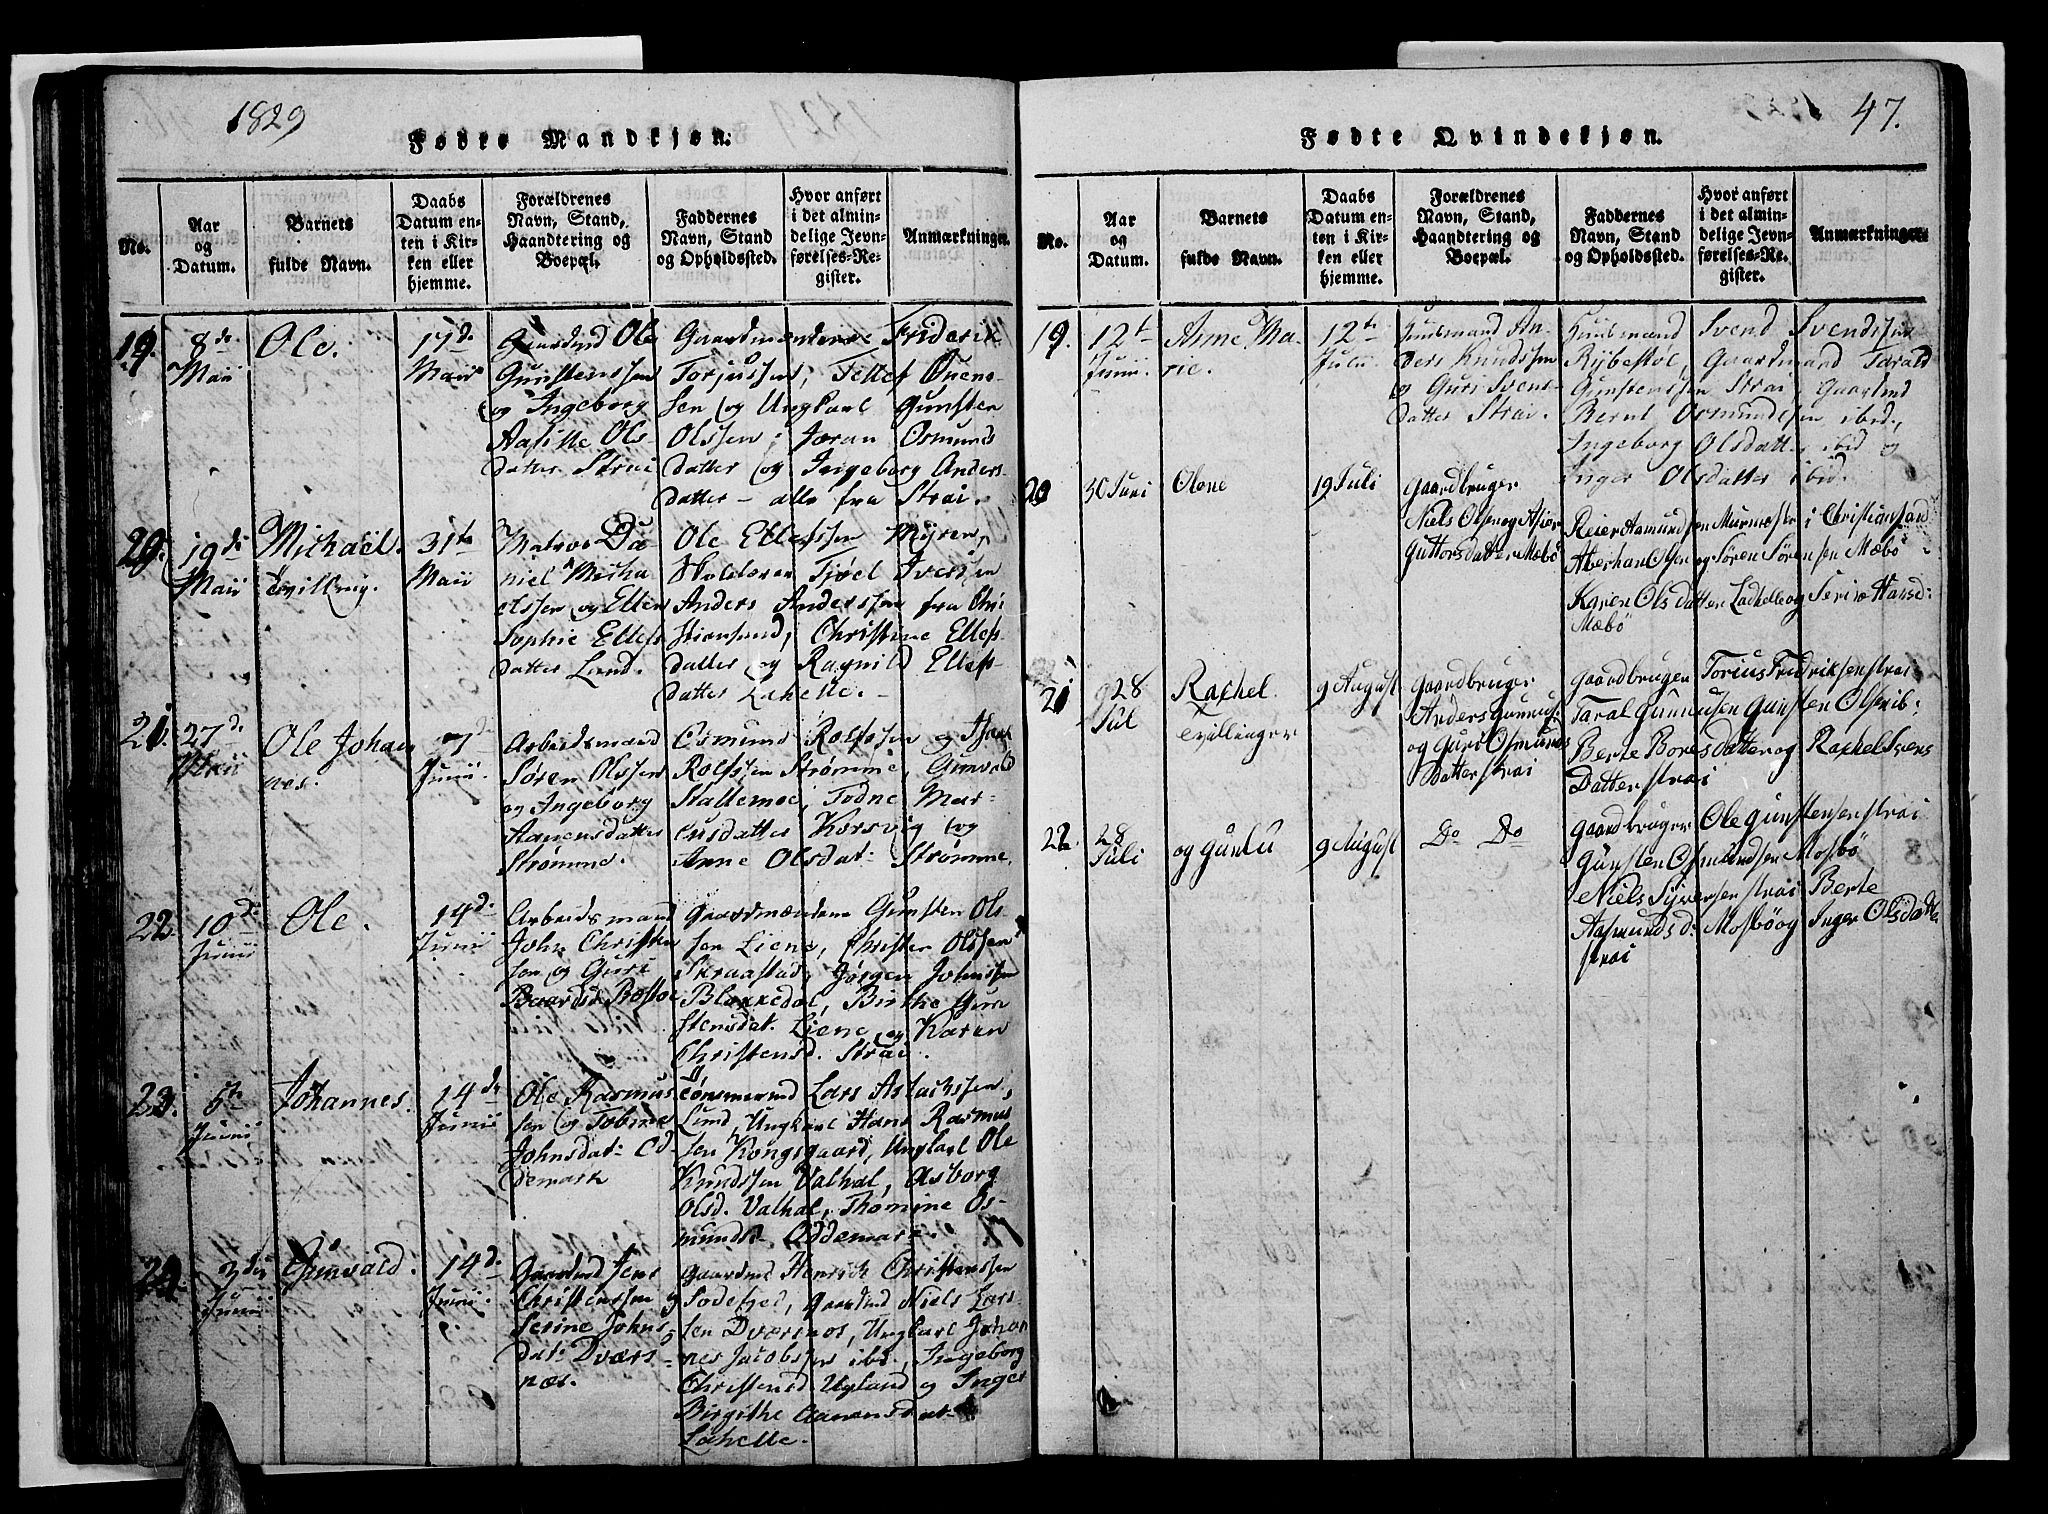 1829
Fødte Mandkjøn.
No.
Aar
og
Datum.
Barnets
fulde Navn.
Daabs
Datum en-
ten i Kir-
ken eller
hjemme.
Forældrenes
Navn, Stand,
Haandtering og
Boepæl.
Faddernes
Navn, Stand
og Opholdssted.
Hvor anført
i det almin-
delige Jevn-
førelses-Re-
gister.
Anmærkninger.
19.
8de
Maii
Ole.
17de
Maii
Gaardmd Ole
Gunstenssen
og Ingeborg
Olsdatter Strai
Gaardmændene Friderik
Torjussen, Tellef
og Ungkarl Gunsten
Olssen, Joran Osmunds
datter og Ingeborg Anders
datter – alle fra Strai.
20.
19de
Maii
Michael.
Tvilling.
31te
Maii
Matros Da-
niel Micha
elssen og Ellen
Sophie Ellefs
datter Lund.
Ole Ellefssen Myren,
Tjøel Iverssen
Anders Anderssen fra Chri
stiansund, Christine Ellefs
datter og Ragnild Ellefs
datter Lahelle.
21.
27de
Maii
Ole Johan
nes.
7de
Junii.
Arbeidsmand
Søren Olssen
og Ingeborg
Aanensdatter
Strømme.
Osmund Rolfssen og
Rolfssen Strømme, Gunvald
Stallemoe, Todne Mar-
cusdatter Korsvig og
Anne Olsdat: Strømme.
22.
10de
Junii
Ole.
14de
Junii
Arbeidsmand
John Christen
sen og Guri
Baardsd
Gaardmændene Gunsten Ols
sen Liene, Christen Olssen
Skraastad, Jørgen Johnssen
Blakkedal, Birthe Gun
stensdat. Liene og Karen
Christensd. Strai.
23.
5te
Junii
Johannes.
14de
Junii
Ole Rasmus
sen og Tobine
Johnsdat: Od
demark
Tømmermd Lars Aslachssen,
Lund, Ungkarl Hans Rasmus
sen Kongsgaard, Ungkarl Ole
Knudssen Valhal, Asborg
Olsd. Valhal, Thomine Os-
mundsd. Oddemark.
24.
3die
Junii
Gunvald.
14de
Junii.
Gaardmd Jens
Christenssen og
Serine Johns
dat: Dværs
næs.
Gaardmd Henrich Christenssen
Sodefjed, gaardmd Niels Lars-
sen Dværsnes, Ungkarl Johan
nes Jacobssen ibd., Ingeborg
Christensd Ugland og Inger
Birgithe Aanensdat
Lahelle.
47.
Fødte Qvindekjøn.
No.
Aar
og
Datum.
Barnets
fulde Navn.
Daabs
Datum en-
ten i Kir-
ken eller
hjemme.
Forældrenes
Navn, Stand,
Haandtering og
Boepæl.
Faddernes
Navn, Stand
og Opholdssted.
Hvor anført
i det almin-
delige Jevn-
førelses-Re-
gister.
Anmærkninger.
19.
12te
Junii.
Anne Ma-
rie.
12te
Julii.
Huusmand An-
ders Knudssen
og Guri Svens
datter Strai.
Huusmænd Svend Svendssen
Rybestol, Gaardmand Tarald
Gunstenssen Strai, Gaardmd
Bernt Osmundssen ibid.,
Ingeborg Olsdatt. ibid og
Inger Olsdatter ibid.
20
30 Juni
Olene
19 Juli
Gaardbruger
Niels Olsen og Asier
Guttorsdatter Mæbø
Reier Asmundsen Murmester i Christiansand
Aberhan Olsen og Søren Sørensen Mæbø
Karen Olsdatter Lachelle og Serine Hansd:
Mæbø
21
28
Jul
Rachel
Tvillinger
9 August
Gaardbruger
Anders Gunnus
og Guri Osmunds
Datter Strai
Gaardbruger Torius Fredriksen Strai
Taral Gunnusen Gunsten Olsen ib:
Berte Boresdatter og Rachel Svens
Datter Strai
22.
28
Juli
og Gunlu
9 August
Do Do
Gaardbruger Ole Gunstensen Strai
Gunsten Osmundsen Mosbø
Niels Syversen Strai Berte
Aasmundsd: Mosbø og Inger Olsdatte
Strai